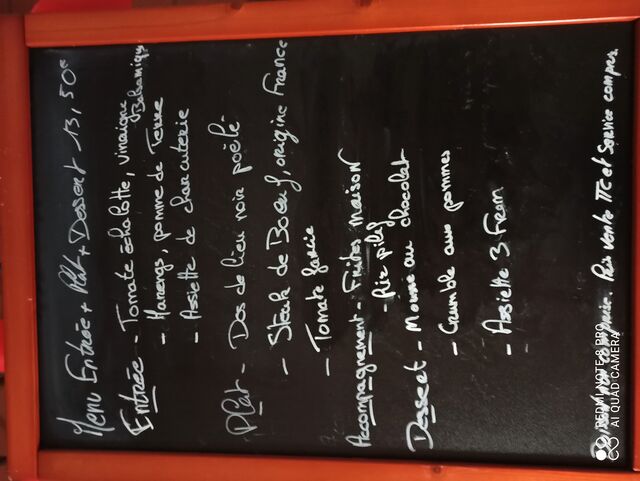 Menu Entrée + Plat + Dessert 13,50€
Entrée - Tomate échalotte, vinaigre Balsamique
- Harengs pomme de Terre
- Assiette de charcuterie
Plat - Dos de lieu noir poêlé
- Steak de Boeuf, origine France
- Tomate farcie
Accompagnement - Frites maison
- Riz pilaf
Dessert - Mousse au chocolat
- Crumble aux pommes
- Assiette 3 From
Boisson non comprise. Prix vente TTC et Service compris.
REDMI NOTE 8 PRO
AI QUAD CAMERA